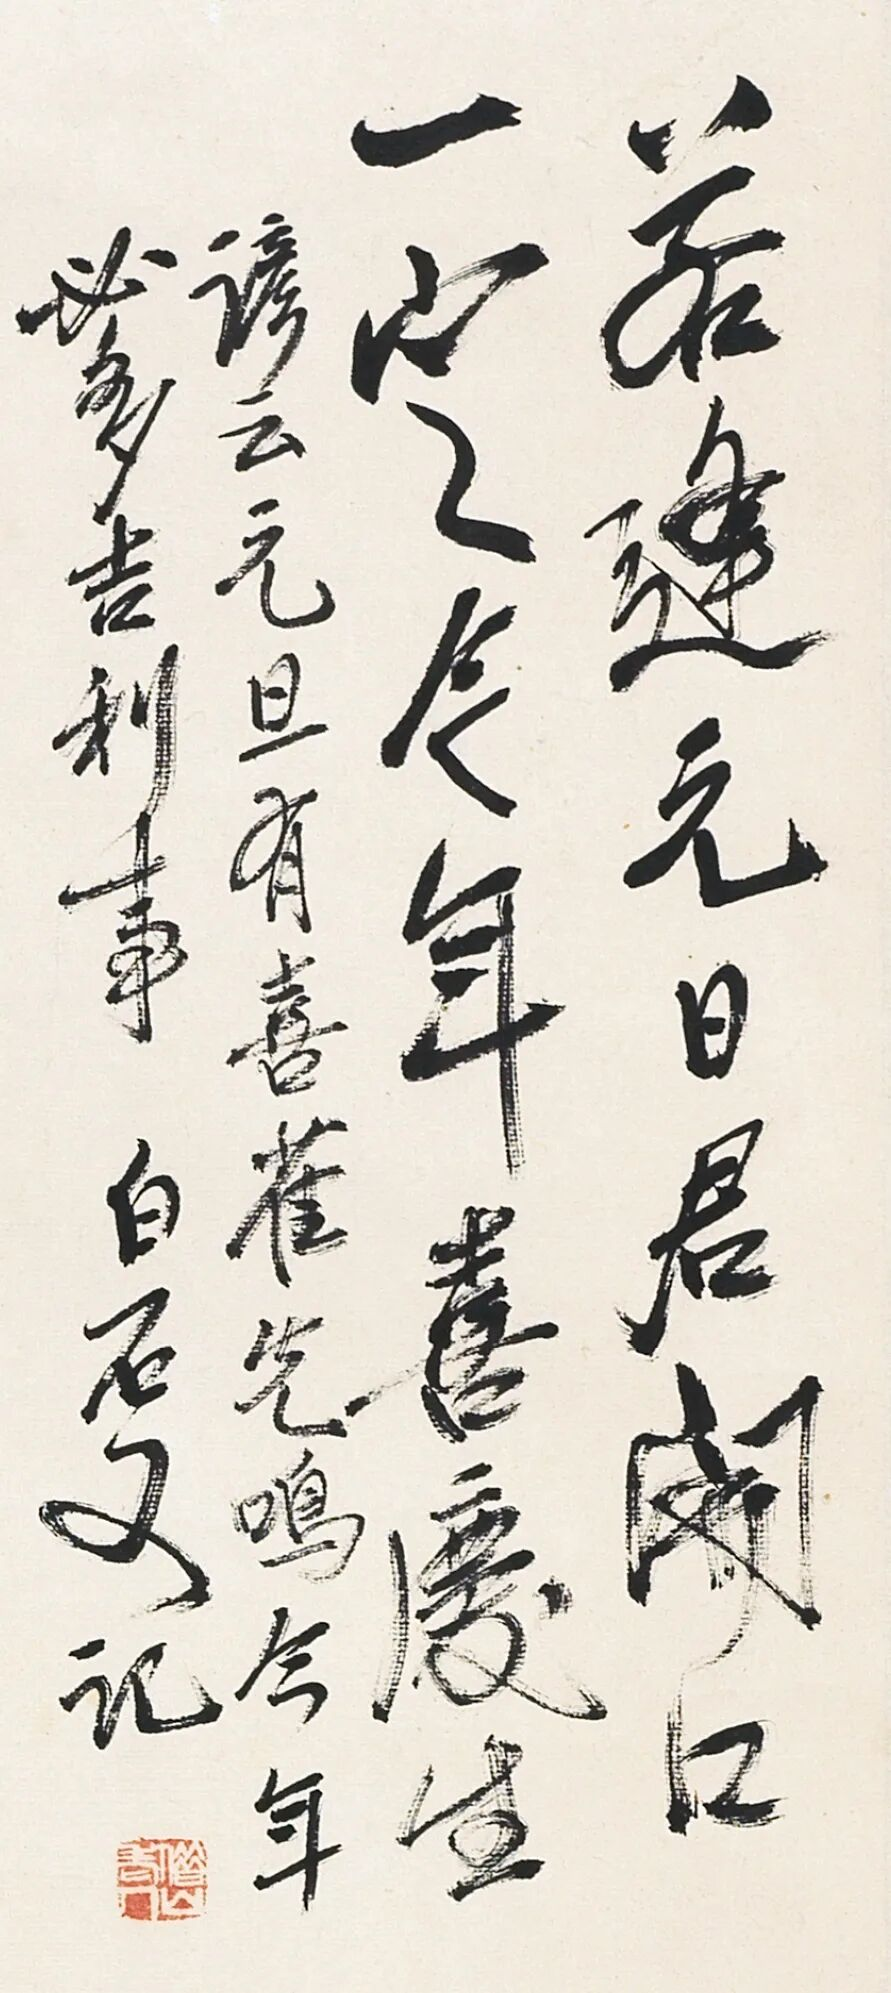 若逢元日君開口
一定今年喜慶生
諺云元旦有喜雀先鳴今年
必多吉利事 白石又記